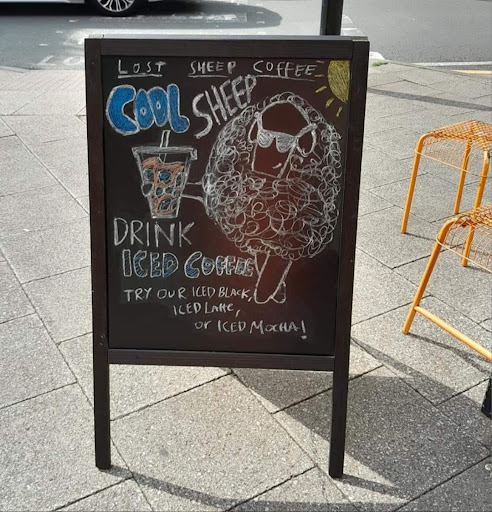 LOST SHEEP COFFEE
COOL SHEEP
DRINK
ICED COFFEE
TRY OUR ICED BLACK,
ICED LATTE,
OR ICED MOCHA!